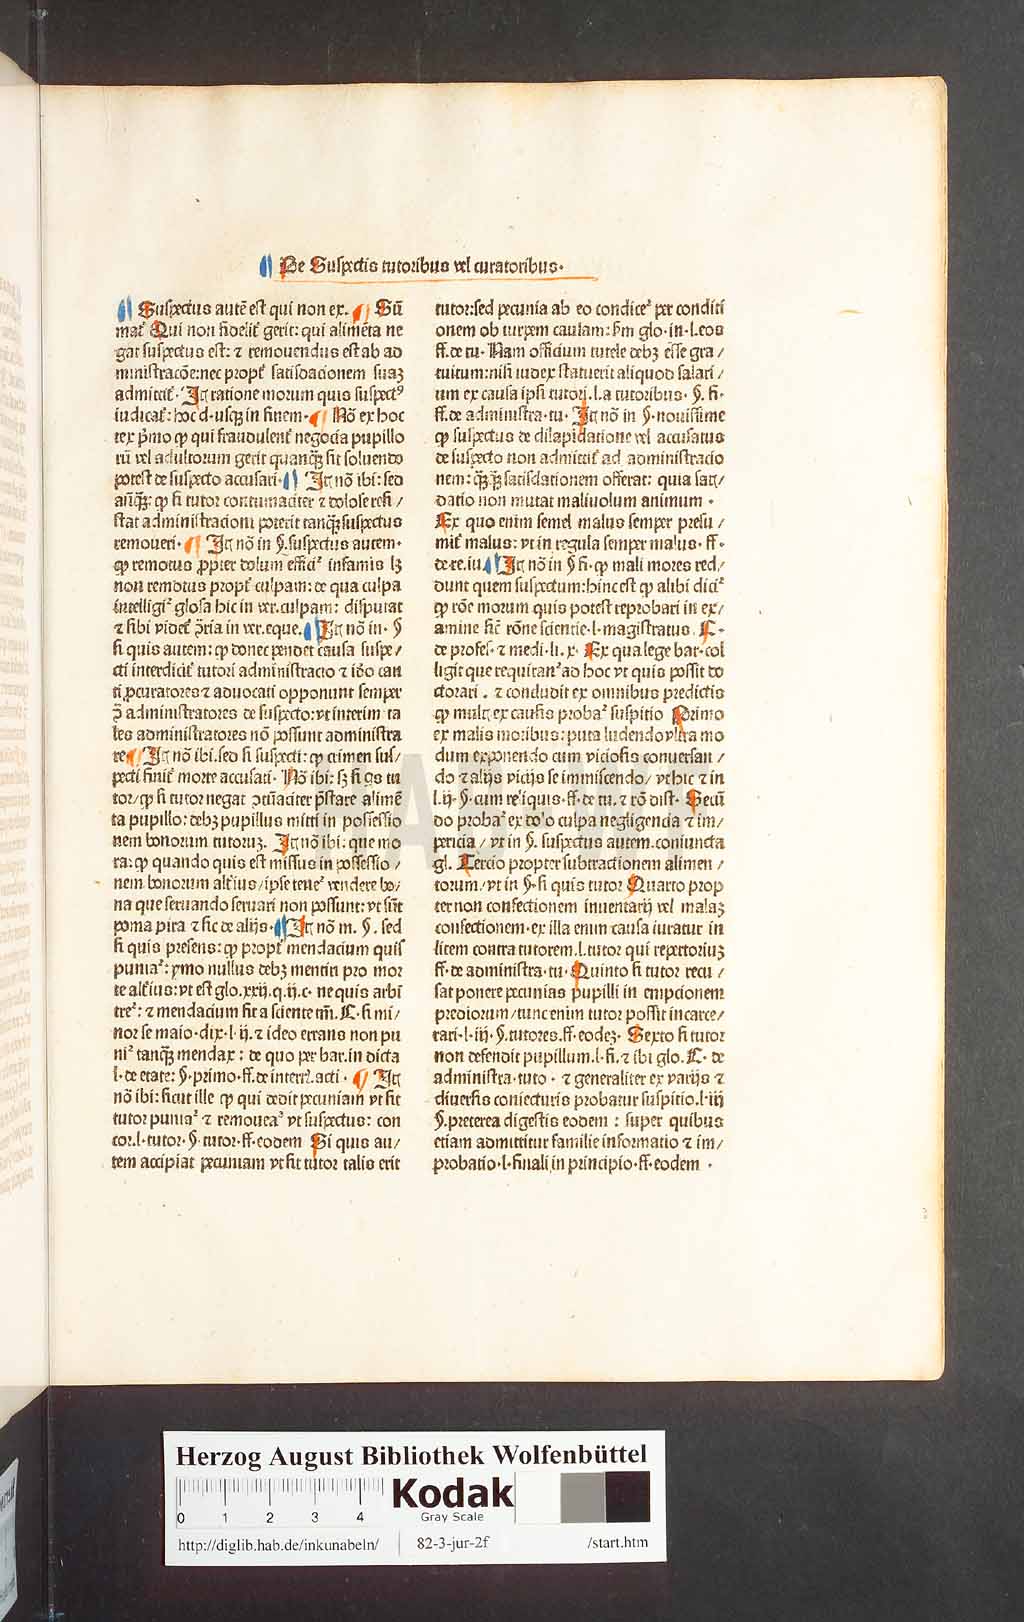 De Suspectis tutoribus vel curatoribus.
Suspectus autē est qui non ex. Sū
mat̄ Qui non fidelit̄ gerit: qui alimēta ne
gat suspectus est: ⁊ remouendus est ab ad
ministracōe: nec propt̄ satisdacionem suaꝫ
admittit̄. Itꝫ ratione morum quis suspectꝰ
iudicat̄: hoc d. vsqꝫ in finem. Nō ex hoc
tex p̄mo ꝙ qui fraudulent̄ negocia pupillo
rū vel adultorum gerit quanqꝫ sit soluendo
potest de suspecto accusari. Itꝫ nō ibi: sed
ꝙ si tutor contumaciter ⁊ dolose resi/
stat administracioni poterit tanqꝫ suspectus
remoueri. Itꝫ nō in §. suspectus autem.
ꝙ remotus ꝓpter dolum effici᷑ infamis lꝫ
non remotus propt̄ culpam: de qua culpa
intelligi᷑ glosa hic in ver. culpam: disputat
⁊ sibi videt̄ 9̄ria in ver. eque. Itꝫ nō in. §
si quis autem: ꝙ donec pendet causa suspe/
cti interdicit̄ tutori administracio ⁊ iđo cau
ti ꝓcuratores ⁊ aduocati opponunt semper
9̄ administratores de suspecto: vt interim ta
les administratores nō possunt administra
re. Itꝫ nō ibi. sed si suspecti: ꝙ crimen sus/
pecti finit̄ morte accusati. Nō ibi: sꝫ si qs tu
tor/ ꝙ si tutor negat ꝯtūaciter p̄stare alimē
ta pupillo: debꝫ pupillus mitti in possessio
nem bonorum tutoruꝫ. Itꝫ nō ibi: que mo
ra: ꝙ quando quis est missus in possessio/
nem bonorum alt̄ius/ ipse tene᷑ vendere bo/
na que seruando seruari non possunt: vt sūt
poma pira ⁊ sic de alijs. Itꝫ nō in. §. sed
si quis presens: ꝙ propt̄ mendacium quis
punia᷑: ymo nullus debꝫ mentiri pro mor
te alt̄ius: vt est glo. xxij. q. ij. c. ne quis arbi
tre᷑: ⁊ mendacium fit a sciente tm̄. C. si mi/
nor se maio. dix. l. ij. ⁊ ideo errans non pu
ni᷑ tanqꝫ mendax: de quo per bar. in dicta
l. de etate: §. primo. ff. de interr. acti. Itꝫ
nō ibi: sicut ille ꝙ qui dedit pecuniam vt sit
tutor punia᷑ ⁊ remouea᷑ vt suspectus: con
cor. l. tutor. §. tutor. ff. eodem Si quis au/
tem accipiat pecuniam vt sit tutor talis erit
tutor: sed pecunia ab eo condice᷑ per conditi
onem ob turpem causam: sm̄ glo. in. l. eos
ff. de tu. Nam officium tutele debꝫ esse gra/
tuitum: nisi iudex statuerit aliquod salari/
um ex causa ipsi tutori. l. a tutoribus. §. fi.
ff. de administra. tu. Itꝫ nō in §. nouissime
ꝙ suspectus de dilapidatione vel accusatus
de suspecto non admittit̄ ad administracio
nem: satisdationem offerat: quia satis/
datio non mutat maliuolum animum.
Ex quo enim semel malus semper presu/
mit̄ malus: vt in regula semper malus. ff.
de re. iu. Itꝫ nō in § fi. ꝙ mali mores red/
dunt quem suspectum: hinc est ꝙ alibi dici᷑
ꝙ rōe morum quis potest reprobari in ex/
amine sic̄ rōne scientie. l. magistratus. C.
de profes. ⁊ medi. li. x. Ex qua lege bar. col
ligit que requiritan᷑ ad hoc vt quis possit do
ctorari. ⁊ concludit ex omnibus predictis
ꝙ multꝫ ex causis proba᷑ suspitio Primo
ex malis moribus: puta ludendo vltra mo
dum exponendo cum viciosis conuersan/
do ⁊ alijs vicijs se immiscendo/ vt hic ⁊ in
l. ij. §. cum reliquis. ff. de tu. ⁊ rō dist. Secū
do proba᷑ ex dolo culpa negligencia ⁊ im/
pericia/ vt in §. suspectus autem. coniuncta
gl. Tercio propter subtractionem alimen/
torum/ vt in §. si quis tutor Quarto prop
ter non confectionem inuentarij vel malaꝫ
confectionem. ex illa enim causa iuratur in
litem contra tutorem. l. tutor qui repertoriuꝫ
ff. de administra. tu. Quinto si tutor recu/
sat ponere pecunias pupilli in empcionem
prediorum/ tunc enim tutor possit incarce/
rari. l. iij. §. tutores. ff. eodeꝫ. Sexto si tutor
non defendit pupillum. l. fi. ⁊ ibi glo. C. de
administra. tuto. ⁊ generaliter ex varijs ⁊
diuersis coniecturis probatur suspitio. l. iij
§. preterea digestis eodem: super quibus
etiam admittitur familie informatio ⁊ im/
probatio. l. finali in principio. ff. eodem.
HAB-WF
Herzog August Bibliothek Wolfenbüttel
0 1 2 3 4
Kodak
Gray Scale
http://diglib.hab.de/inkunabeln/ 82-3-jur-2f /start.htm